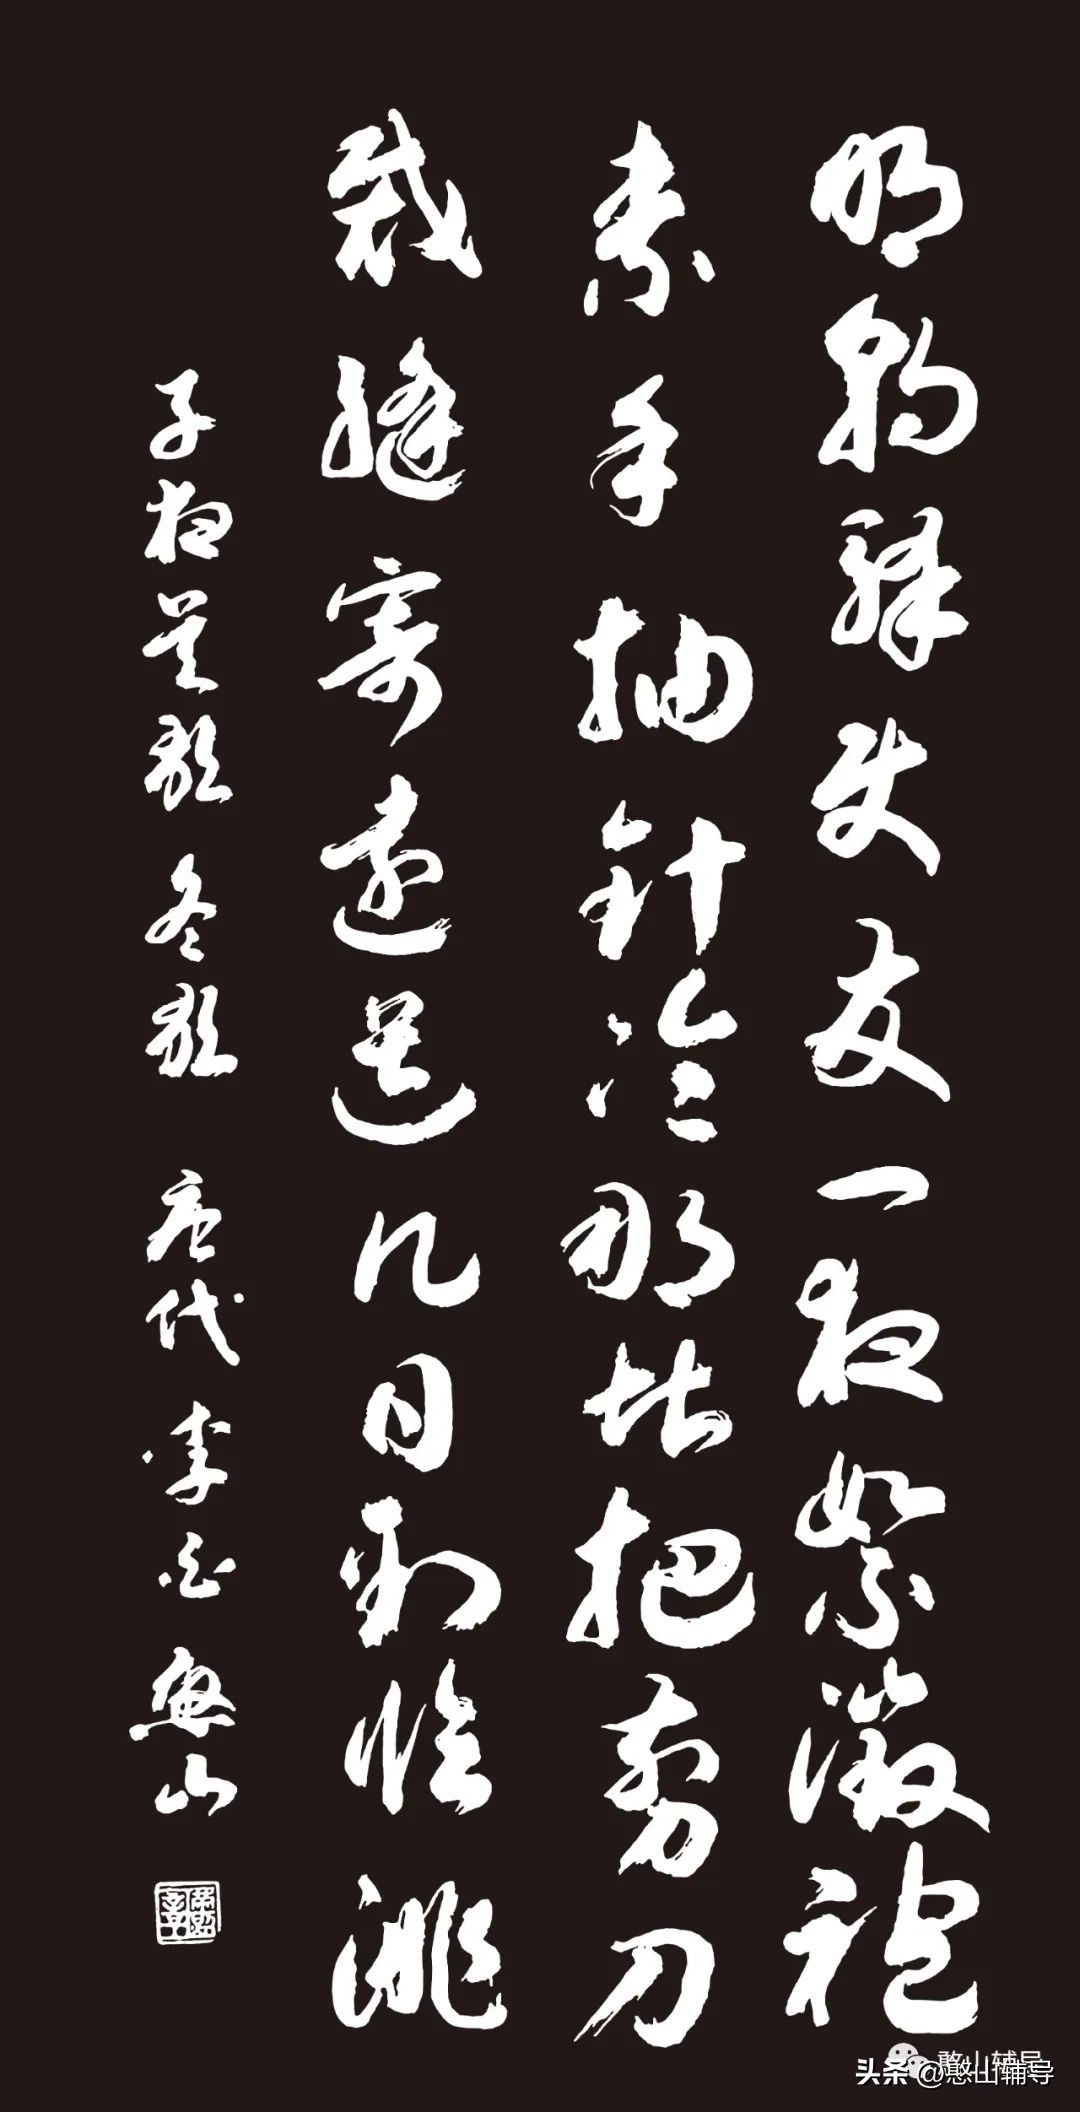 明朝驿使发一夜絮征袍
素手抽针冷那堪把剪刀
裁缝寄远道几日到临洮
子夜吴歌 冬歌 唐代 李白 憨山
憨山辅导
头条 @憨山辅导